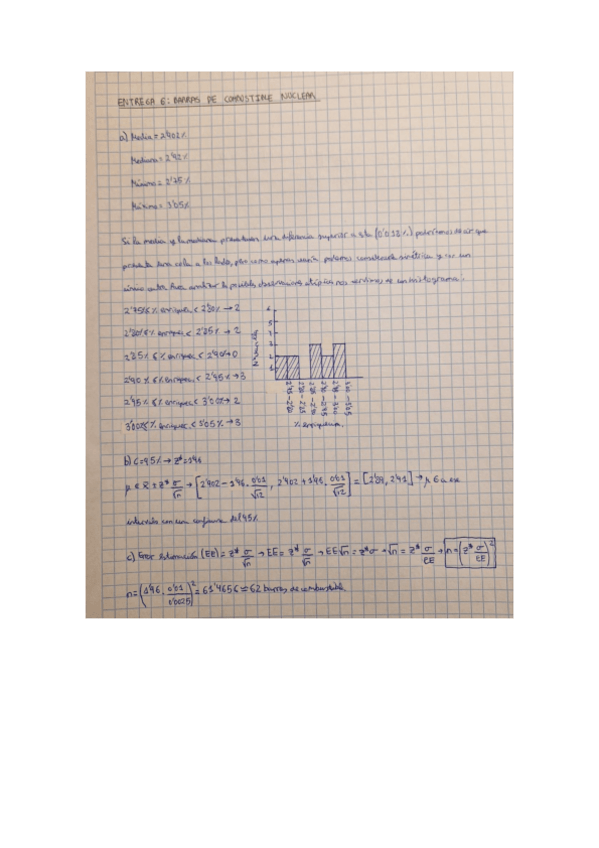 ENTREGA 6: BARRAS DE COMBUSTIBLE NUCLEAR
a) Media = 2'902%
Mediana = 2'92%
Mínimo = 2'75%
Máximo = 3'05%
Si la media y la mediana presentasen una diferencia superior a esta (0'018%) podríamos decir que
presenta una cola a los lados, pero como apenas varía podemos considerarla simétrica y con un
único valor. Para analizar las posibles observaciones atípicas nos servimos de un histograma:
2'75% ≤ % enriquec < 2'80% → 2
2'80% ≤ % enriquec < 2'85% → 2
2'85% ≤ % enriquec < 2'90% → 0
2'90% ≤ % enriquec < 2'95% → 3
2'95% ≤ % enriquec < 3'00% → 2
3'00% ≤ % enriquec < 3'05% → 3
% enriquec
b) C = 95% → z* = 1'96
μ ∈ x̄ ± z* σ/√n → [2'902 - 1'96 · 0'01/√12, 2'902 + 1'96 · 0'01/√12] = [2'89, 2'91] → μ
intervalo con una confianza del 95%
c) Error estimación (EE) = z* σ/√n → EE = z* σ/√n → EE√n = z*σ → √n = z* σ/EE → n = (z* σ/EE)²
n = (1'96 · 0'01/0'0025)² = 61'4656 ≈ 62 barras de combustible